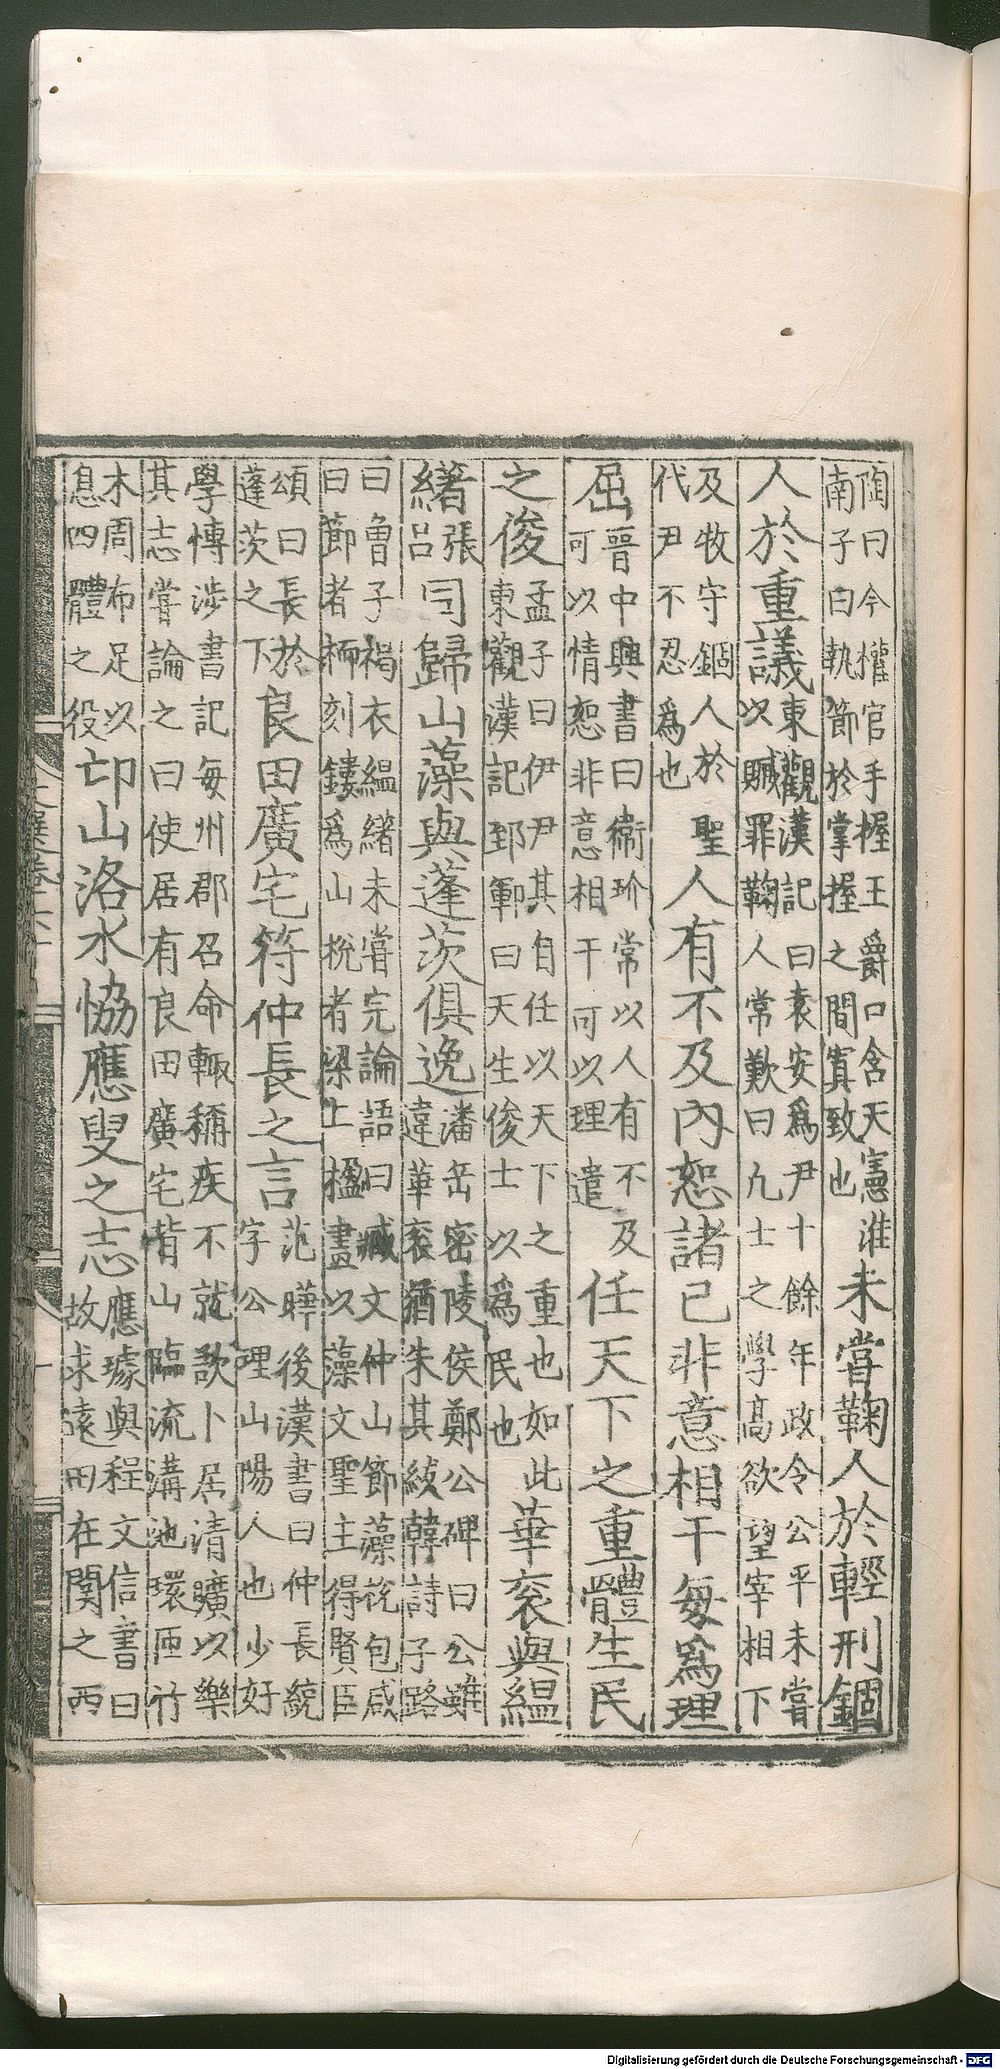 陶曰今權官手握王爵口含天憲淮
南子曰執節於掌握之間實致也
未嘗鞠人於輕刑錮
人於重議
東觀漢記曰袁安爲尹十餘年政令公平未嘗
以贓罪鞠人常歎曰凡士之學高欲望宰相下
及牧守錮人於聖
代尹不忍爲也
人有不及內恕諸己非意相干每爲理
屈
晉中興書曰衛玠常以人有不及
可以情恕非意相干可以理遣
任天下之重體生民
之俊
孟子曰伊尹其自任以天下之重也如此
東觀漢記郅惲曰天生俊士以爲民也
華袞與縕
緒
張
呂
同歸山藻與蓬茨俱逸
潘岳密陵侯鄭公碑曰公雖
違華袞猶朱其紱韓詩子路
曰曾子褐衣縕緒未嘗完論語曰臧文仲山節藻梲包咸
曰節者栭刻鏤爲山梲者梁上楹畫以藻文聖主得賢臣
頌曰長於
蓬茨之下
良田廣宅符仲長之言
范曄後漢書曰仲長統
字公理山陽人也少好
學博涉書記每州郡召命輒稱疾不就欲卜居清曠以樂
其志嘗論之曰使居有良田廣宅背山臨流溝池環匝竹
木周布足以
息四體之役
邙山洛水協應叟之志
應璩與程文信書曰
故求遠田在関之西
文選卷六十
Digitalisierung gefördert durch die Deutsche Forschungsgemeinschaft - DFG